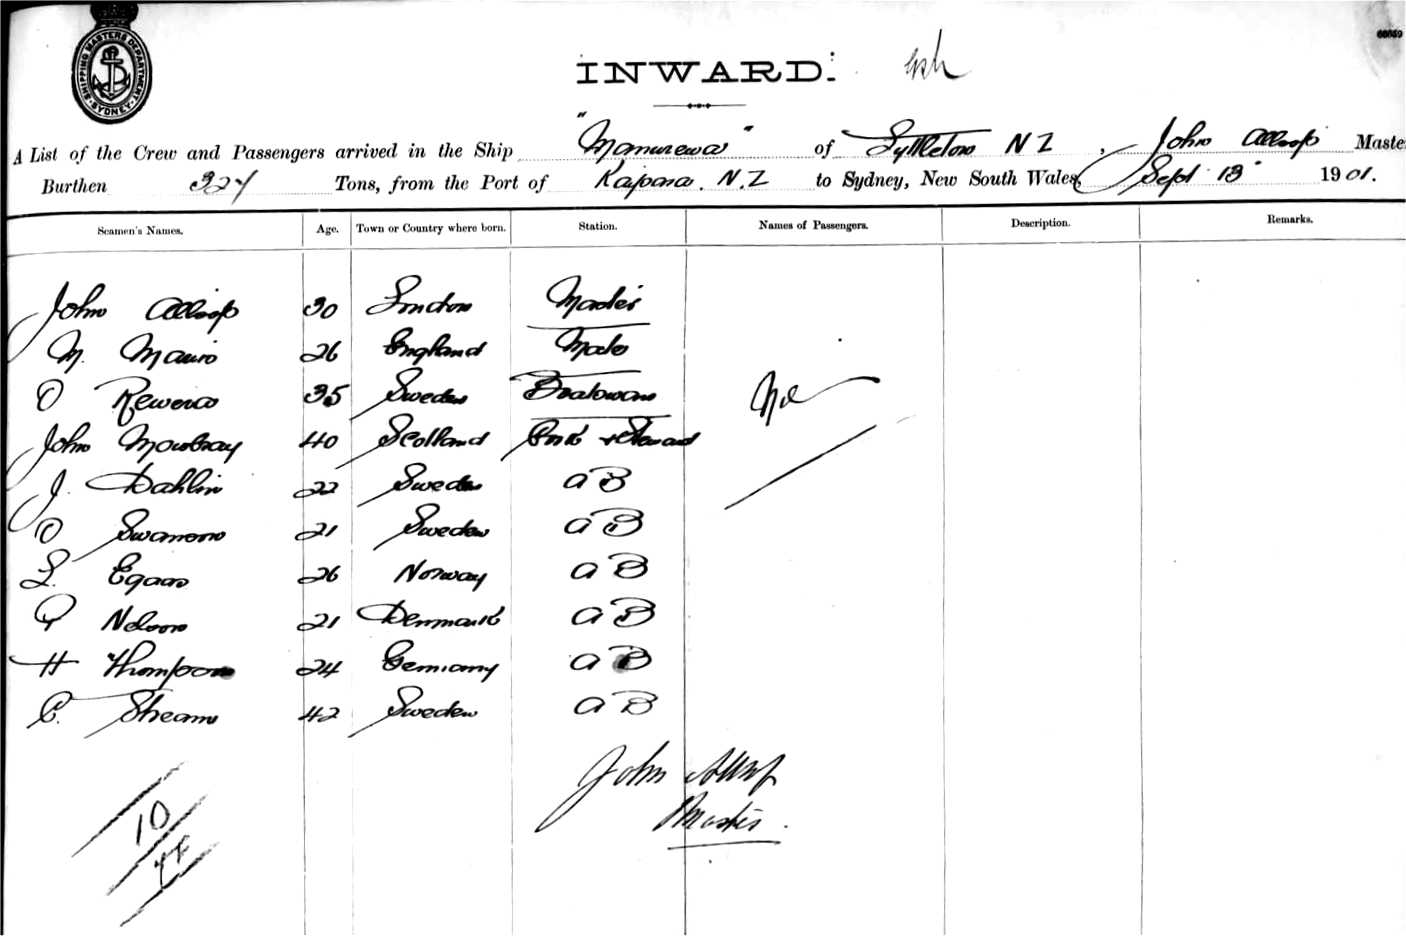 SHIPPING MASTERS DEPARTMENT SYDNEY
INWARD.
A List of the Crew and Passengers arrived in the Ship "Manurewa" of Lyttleton NZ, John Allsop Maste
Burthen 327 Tons, from the Port of Kaipara. N.Z to Sydney, New South Wales, Sept 13 1901.
Seamen's Names. Age. Town or Country where born. Station. Names of Passengers. Description. Remarks.
John Allsop 30 London Master
M. 26 England Mate
O 35 Sweden Boatswan
John Mowbray 40 Scotland Cook + Steward
Nil
J. Dahlin 22 Sweden AB
O Swanson 21 Sweden AB
L. Egaas 26 Norway AB
P Nelson 21 Denmark AB
H Thompson 24 Germany AB
C. 42 Sweden AB
John Allsop
Master.
10